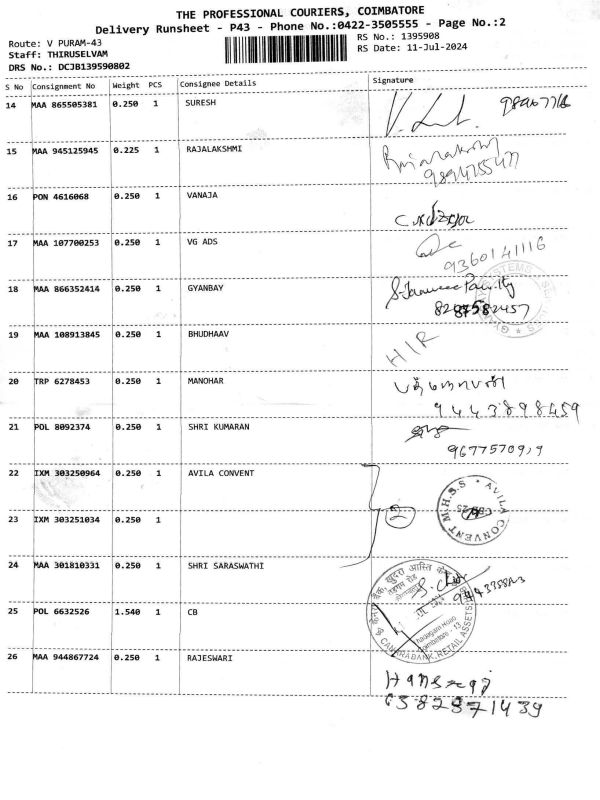 THE PROFESSIONAL COURIERS, COIMBATORE
Delivery Runsheet - P43 - Phone No.:0422-3505555 - Page No.:2
Route: V PURAM-43
RS No.: 1395908
Staff: THIRUSELVAM
RS Date: 11-Jul-2024
DRS No.: DCJB139590802
S No Consignment No Weight PCS Consignee Details Signature
14 MAA 865505381 0.250 1 SURESH
15 MAA 945125945 0.225 1 RAJALAKSHMI
16 PON 4616068 0.250 1 VANAJA
17 MAA 107700253 0.250 1 VG ADS
9360141116
18 MAA 866352414 0.250 1 GYANBAY
19 MAA 108913845 0.250 1 BHUDHAAV
H/R
20 TRP 6278453 0.250 1 MANOHAR
9443898459
21 POL 8092374 0.250 1 SHRI KUMARAN
22 IXM 303250964 0.250 1 AVILA CONVENT
2
AVILA CONVENT M.H.S.S
23 IXM 303251034 0.250 1
24 MAA 301810331 0.250 1 SHRI SARASWATHI
25 POL 6632526 1.540 1 CB
CANARA BANK, RETAIL ASSETS
26 MAA 944867724 0.250 1 RAJESWARI
Hansraj